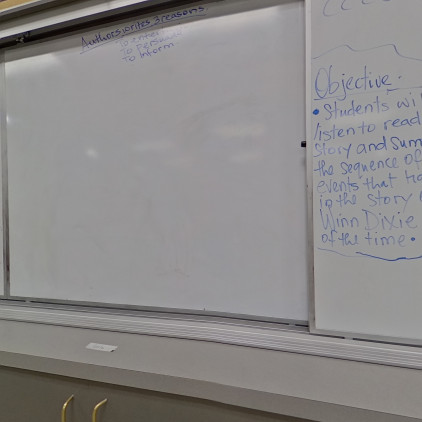 Authors writes 3 reasons.
To enter
To persuade
To inform
Objective.
• Students wi
listen to read
Story and sum
the sequence of
events that ha
in the story
Winn Dixie
of the time.